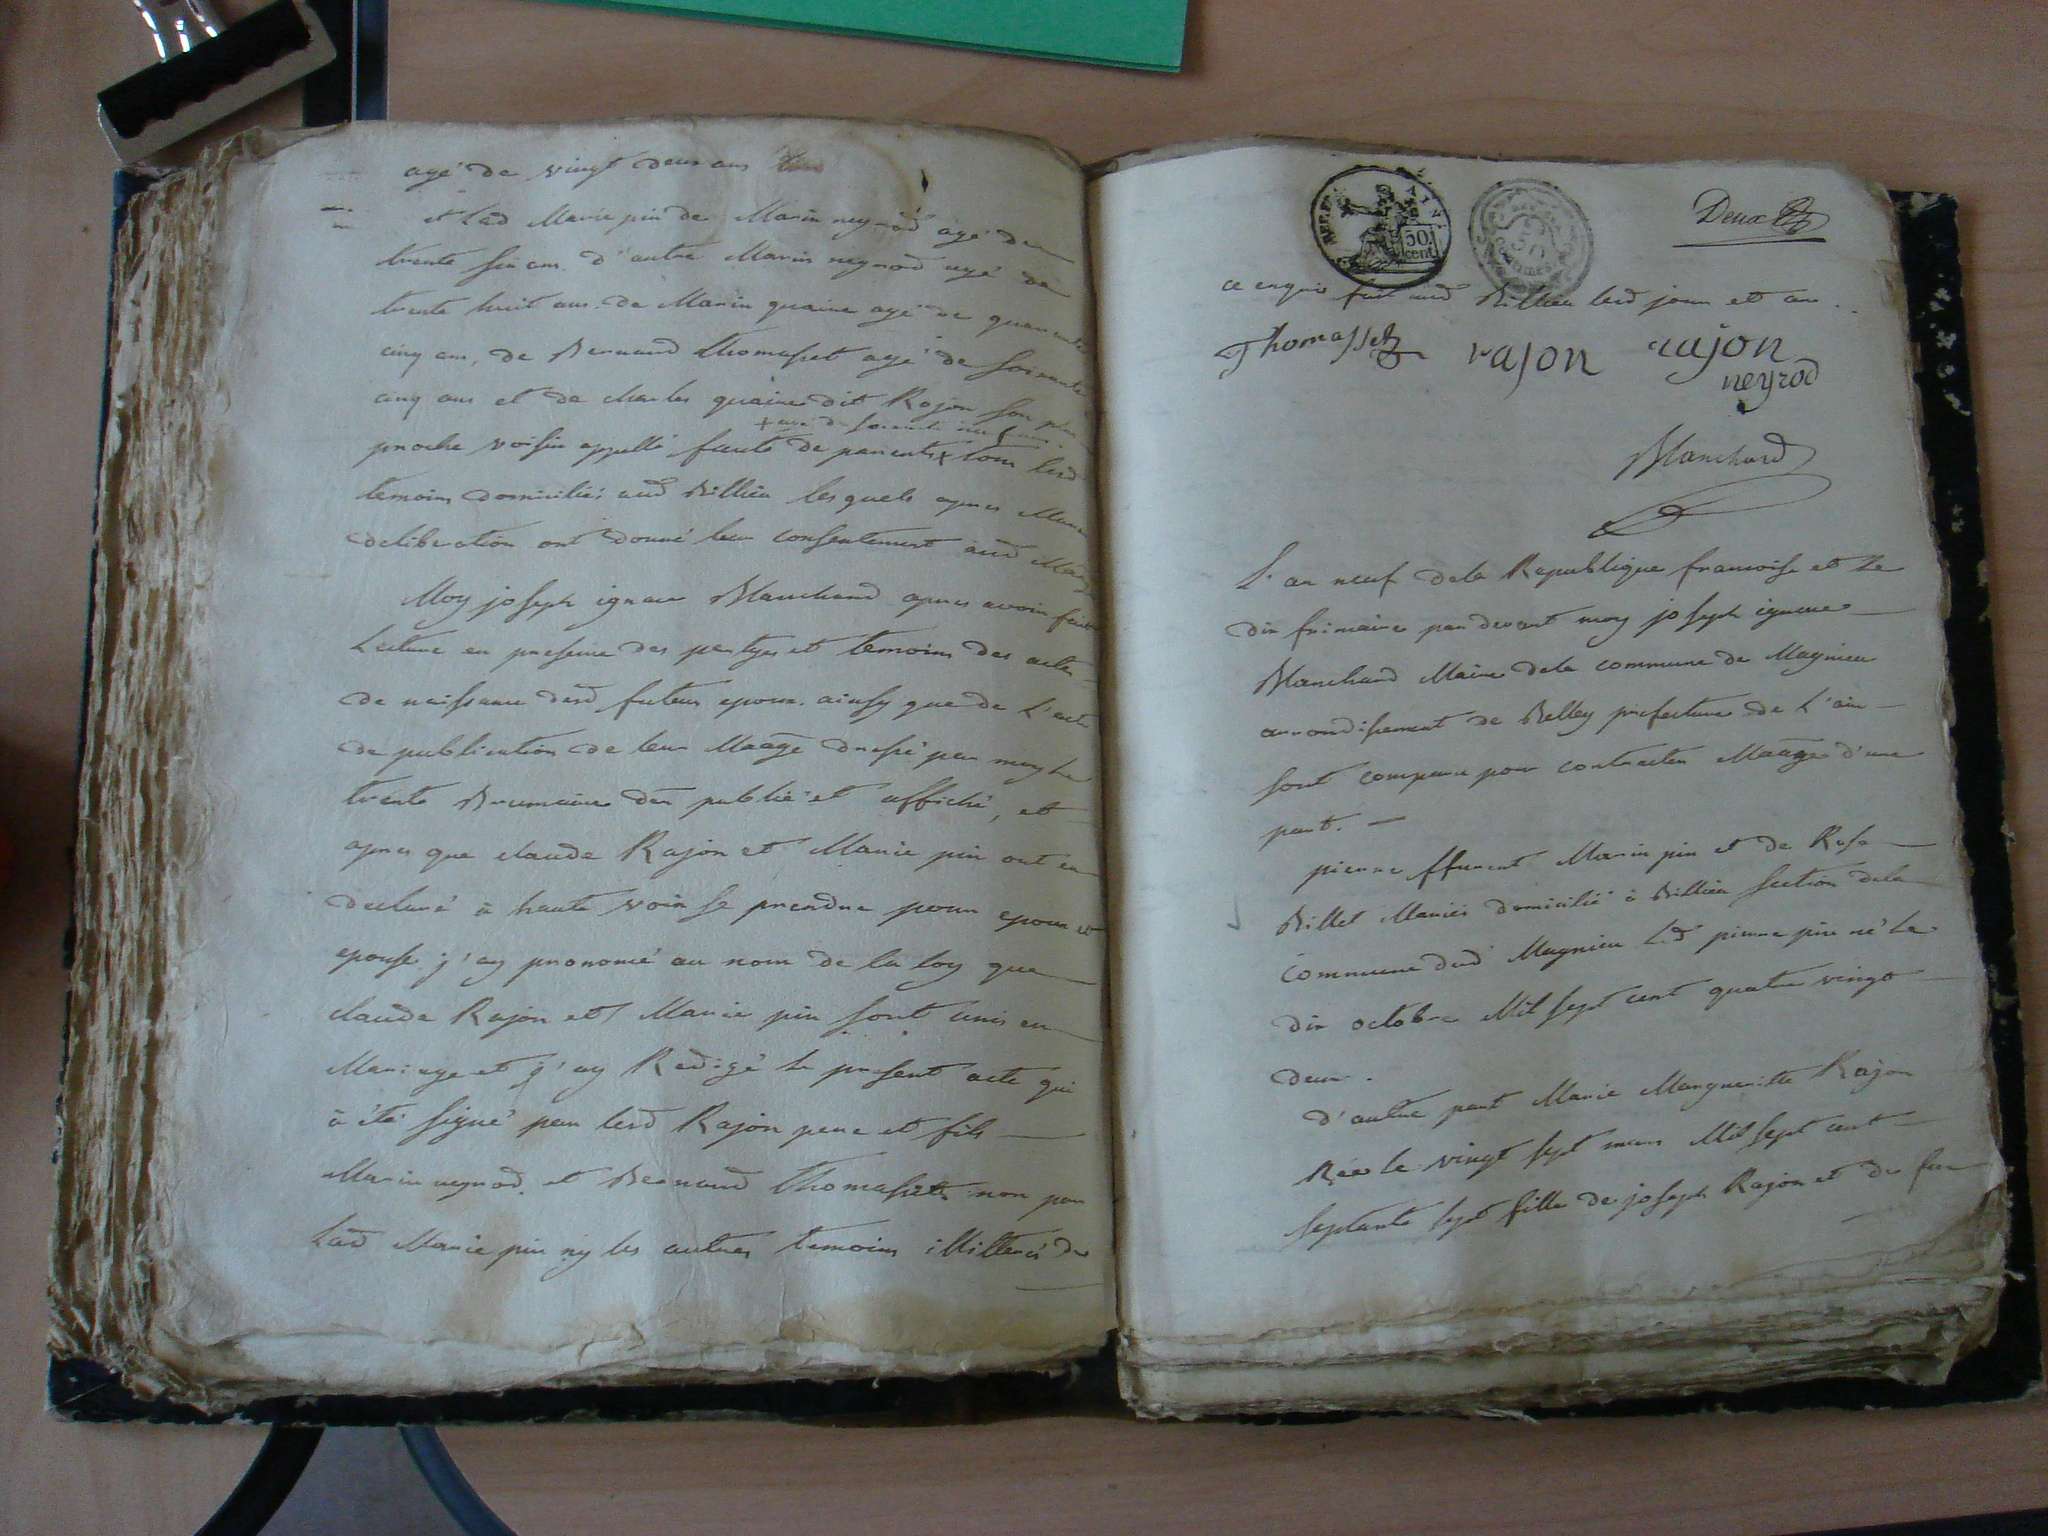 agé de vingt deux ans
et Lad Marie pin de Marin neyrod agé de
trente six ans d'autre Marin neyrod agé de
trente huit ans. de Marin quaine agé de quarante
cinq ans, de Bernard Thomasset agé de soixante
cinq ans et de charles quaine dit Rajon son plus
+ agé de soixante
proche voisin appellé faute de parents + tous lesd
temoins domiciliés aud Billieu lesquels apres Mure
deliberation ont donné leur consentement aud Marge
Moy joseph ignace Blanchard apres avoir fait
Lecture en presence des partyes et temoins des actes
de naissance desd futeurs epoux. ainsy que de L'acte
de publication de leur Maage dressé par moy le
trente Brumaire der publié et affiché, et
apres que claude Rajon et Marie pin ont eu
declaré à haute voix se prendre pour epoux et
epouse j'ay prononcé au nom de la loy que
claude Rajon et Marie pin sont unis en
Mariage et j'ay Redigé le present acte qui
à été signé par lesd Rajon pere et fils
Marin neyrod. et Bernard Thomasset non par
Lad Marie pin ny les autres temoins illitteres de
REP. F. AIN
50 cent.
Deux
ce enquis fait aud Billieu lesd jour et an.
Thomasset rajon rajon
neyrod
Blanchard
L'an neuf dela Republique francoise et Le
dix frimaire par devant moy joseph ignace
Blanchard Maire dela commune de Magnieu
arrondissement de Belley prefecture de L'ain
sont comparu pour contracter Maage d'une
part.
pierre ffeu Marin pin et de Rose
Billet Mariés domicilié à Billieu section dela
commune dud Magnieu Led pierre pin né Le
dix octobre Mil sept cent quatre vingt
deux.
d'autre part Marie Margueritte Rajon
Née le vingt sept mars Mil sept cent
septante sept fille de joseph Rajon et de feu